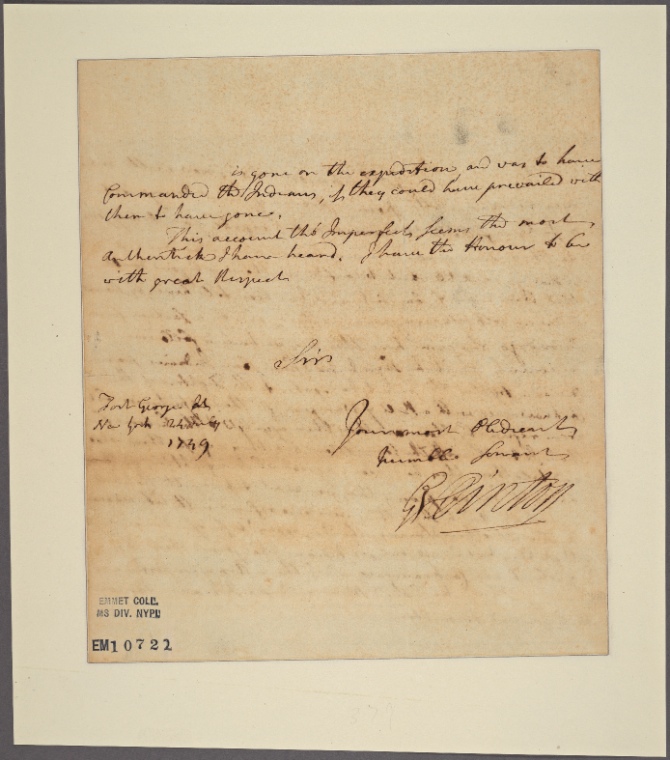 is gone on the expedition and was to have
Commanded the Indians, if they could have prevailed with
them to have gone.
This account tho' Imperfect, seems the most
Authentick I have heard. I have the Honour to be
with great Respect
Sir
Fort George At
New York 24
1749
Your most Obedient
humble Servant
G Clinton
EMMET COLL.
MS DIV. NYPL
EM10722